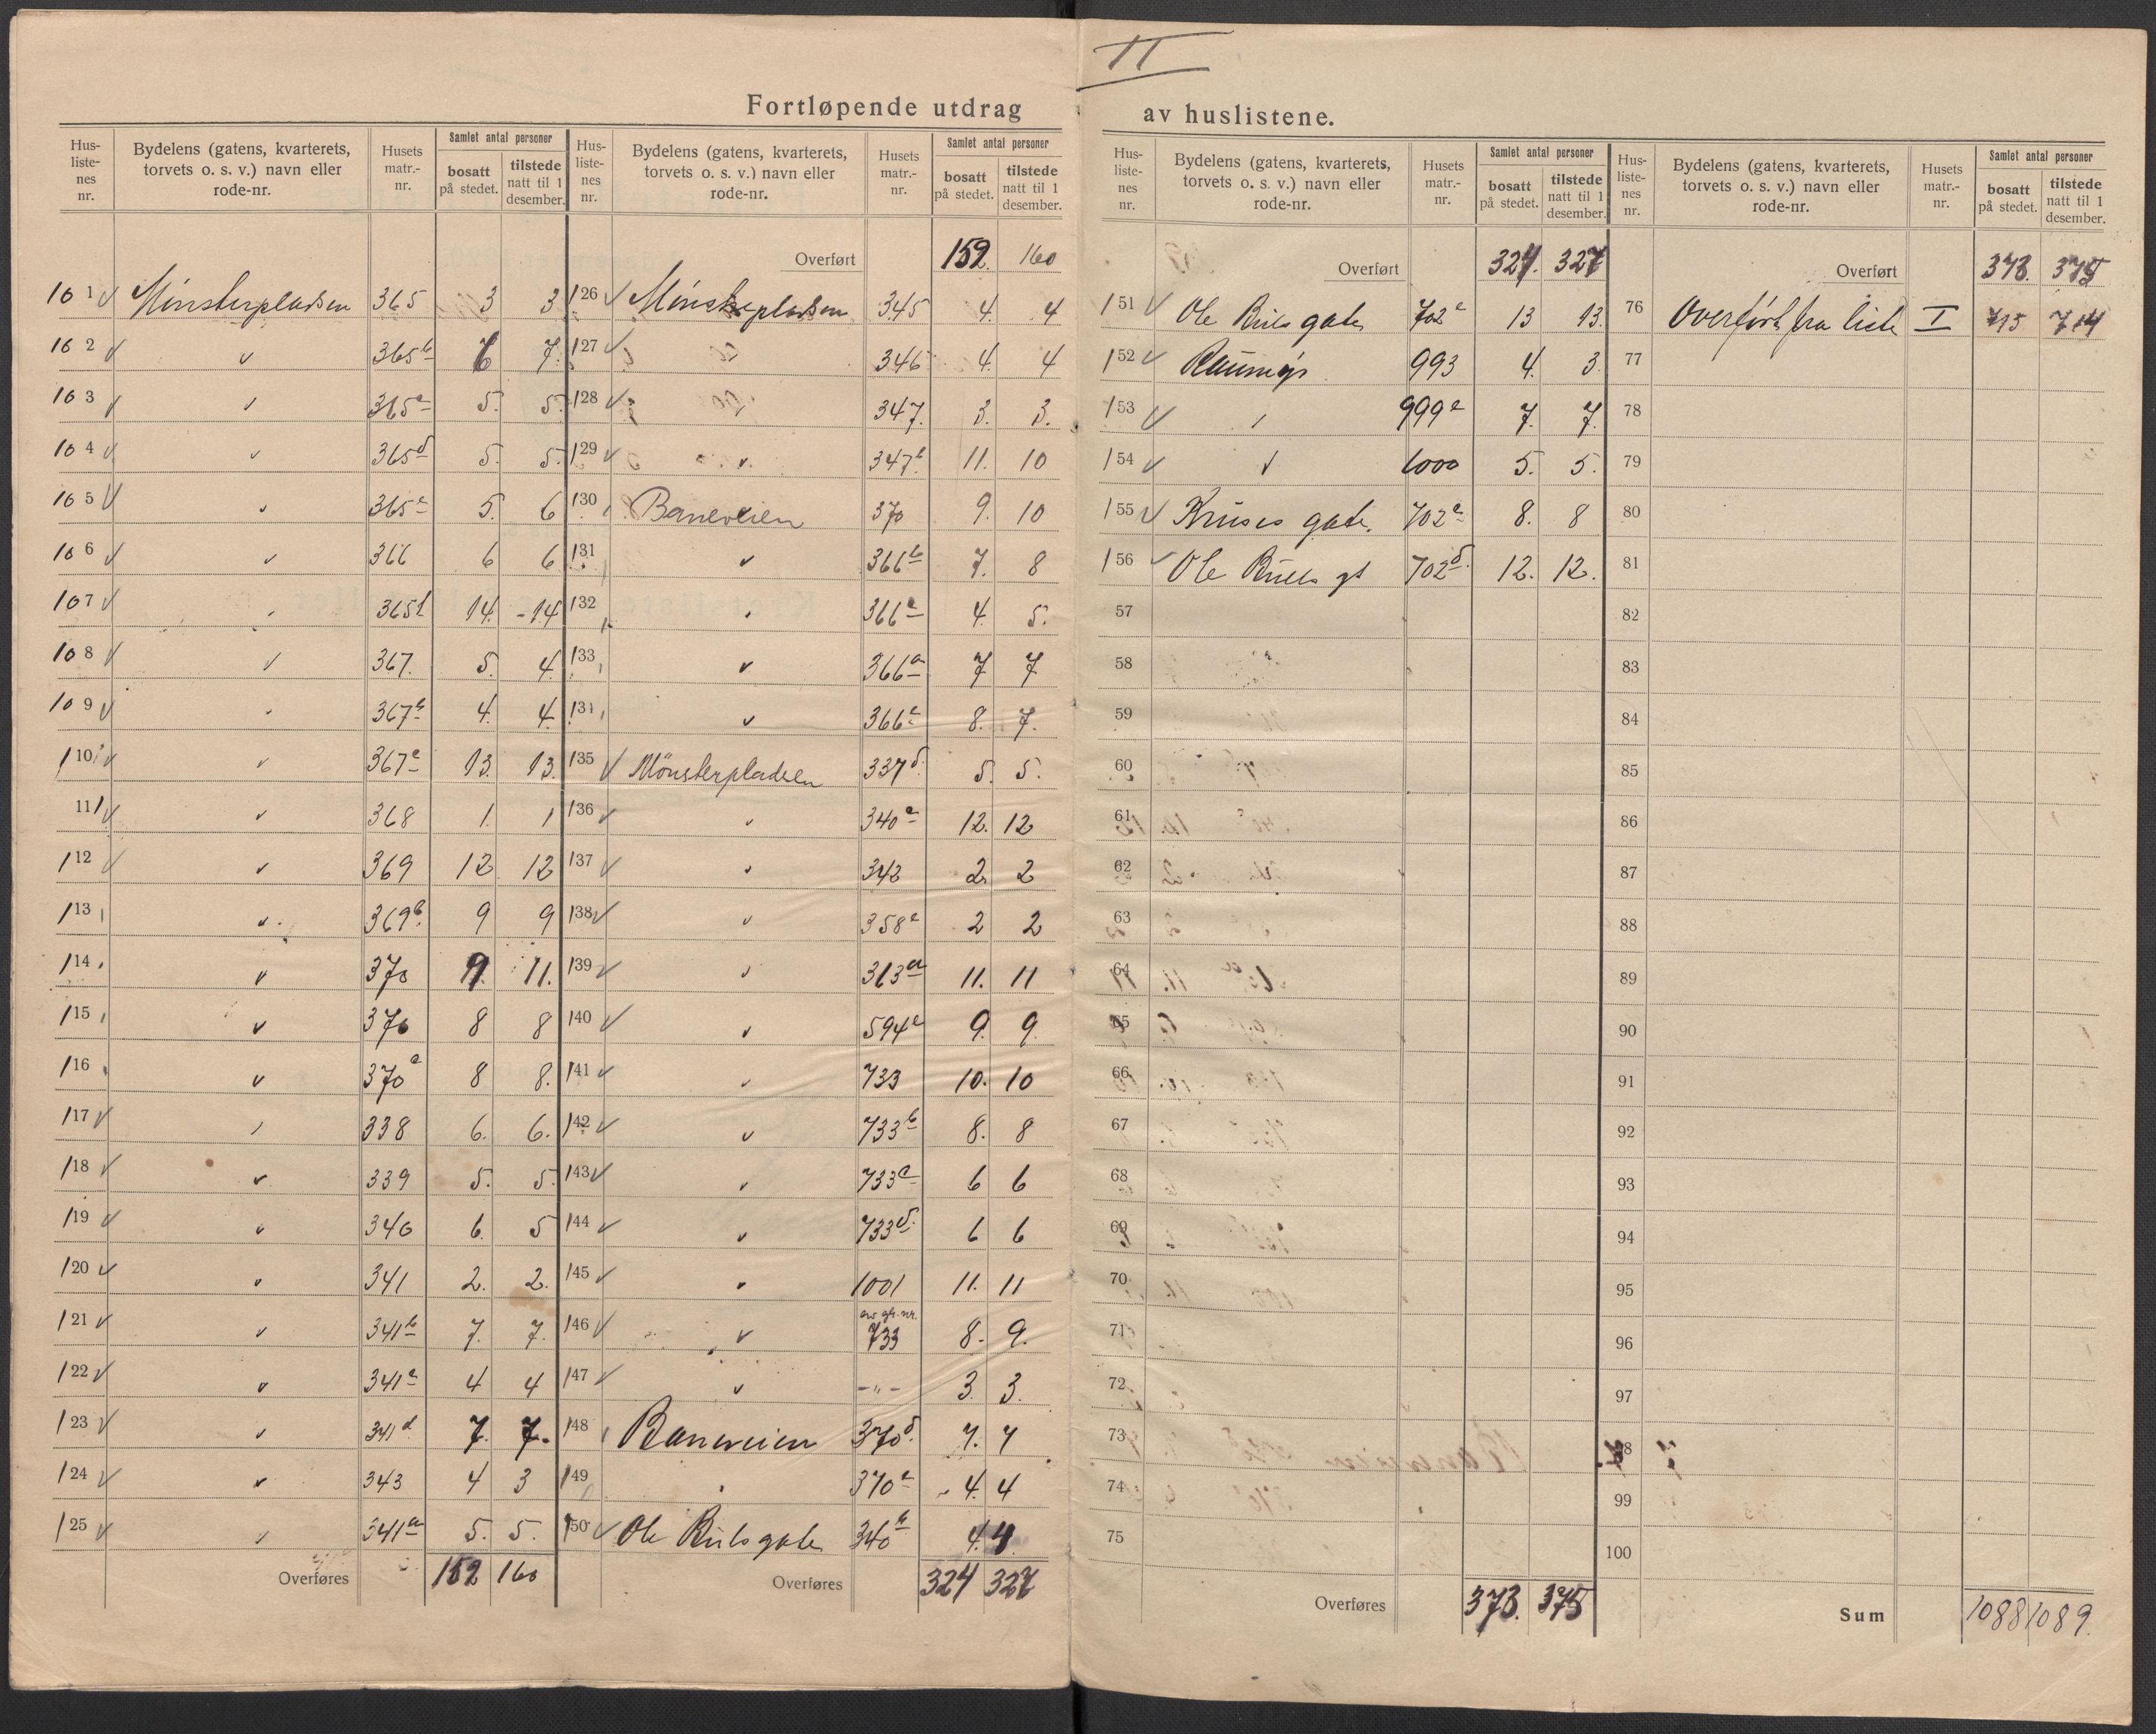 II
Fortløpende utdrag av huslistene.
Hus-liste-nes nr. Bydelens (gatens, kvarterets, torvets o. s. v.) navn eller rode-nr. Husets matr.-nr. Samlet antal personer bosatt på stedet. tilstede natt til 1 desember.
101 ✓ Mønsterpladsen 365 3 3
102 ✓ " 365b 6 7.
103 ✓ " 365c 5. 5.
104 ✓ " 365d 5. 5.
105 ✓ " 365e 5. 6
106 ✓ " 366 6 6
107 ✓ " 365f 14. 14
108 ✓ " 367. 5. 4.
109 ✓ " 367b 4. 4.
110 ✓ " 367c 13. 13.
111 ✓ " 368 1. 1
112 ✓ " 369 12 12
113 " 369b. 9 9
114 " 370 9. 11.
115 " 370 8 8
116 " 370a 8 8.
117 ✓ " 338 6. 6.
118 ✓ " 339 5. 5.
119 ✓ " 340 6. 5
120 ✓ " 341 2. 2.
121 ✓ " 341b 7. 7.
122 ✓ " 341c 4 4
123 ✓ " 341d 7. 7.
124 ✓ " 343 4 3
125 ✓ " 341a 5. 5.
Overføres 152 160
Hus-liste-nes nr. Bydelens (gatens, kvarterets, torvets o. s. v.) navn eller rode-nr. Husets matr.-nr. Samlet antal personer bosatt på stedet. tilstede natt til 1 desember.
Overført 152. 160
126 ✓ Mønsterpladsen 345 4. 4
127 ✓ " 346 4. 4
128 ✓ " 347. 3. 3.
129 ✓ " 347b 11. 10
130 Baneveien 370 9. 10
131 " 366b 7. 8
132 " 366c 4. 5.
133 " 366a 7 7
134 " 366e 8. 7.
135 ✓ Mønsterpladsen 337d. 5. 5.
136 ✓ " 340c 12. 12
137 ✓ " 342 2. 2
138 ✓ " 358c 2 2
139 ✓ " 363a 11. 11
140 ✓ " 594c 9. 9.
141 ✓ " 733 10. 10
142 ✓ " 733b 8. 8
143 ✓ " 733c 6 6
144 ✓ " 733d. 6 6
145 ✓ " 1001 11. 11
146 ✓ " av gr. nr. 733 8. 9.
147 ✓ " -"- 3. 3.
148 Baneveien 370d. 7. 7
149 " 370e 4. 4
150 ✓ Ole Buls gate 340b 4. 4.
Overføres 324 327
Hus-liste-nes nr. Bydelens (gatens, kvarterets, torvets o. s. v.) navn eller rode-nr. Husets matr.-nr. Samlet antal personer bosatt på stedet. tilstede natt til 1 desember.
Overført 324. 327
151 ✓ Ole Buls gate 702c 13 13.
152 ✓ 993 4. 3.
153 ✓ " 999e 7. 7.
154 ✓ " 1000 5. 5.
155 ✓ Kruses gate. 702e 8. 8
156 ✓ Ole Bulls gt 702d. 12. 12.
57
58
59
60
61
62
63
64
65
66
67
68
69
70
71
72
73
74
75
Overføres 373. 375
Hus-liste-nes nr. Bydelens (gatens, kvarterets, torvets o. s. v.) navn eller rode-nr. Husets matr.-nr. Samlet antal personer bosatt på stedet. tilstede natt til 1 desember.
Overført 373. 375
76 Overført fra liste I 715 714
77
78
79
80
81
82
83
84
85
86
87
88
89
90
91
92
93
94
95
96
97
98
99
100
Sum 1088 1089.